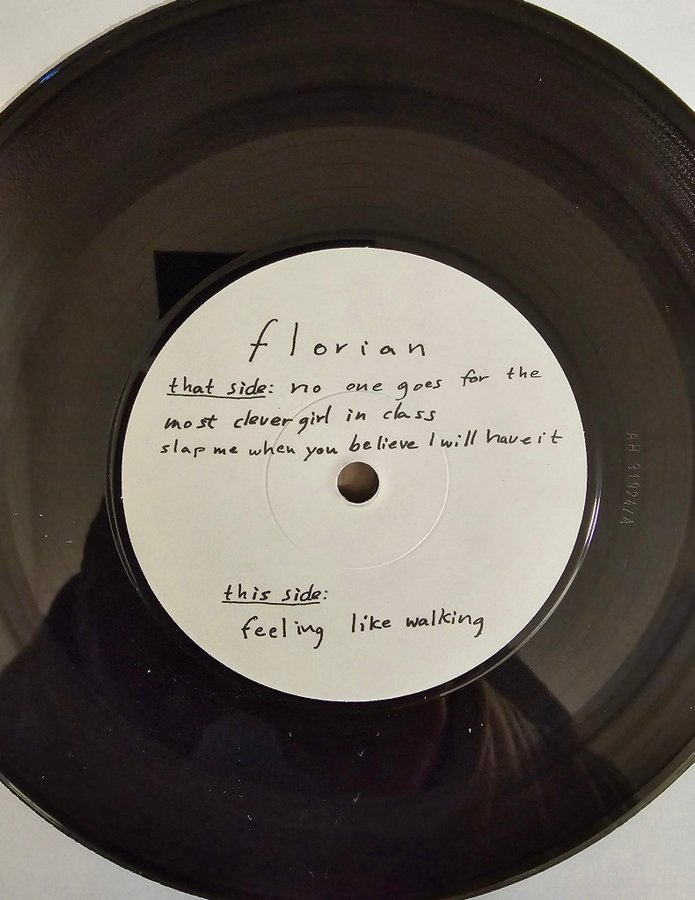 florian
that side: no one goes for the
most clever girl in class
slap me when you believe I will have it
this side:
feeling like walking
AH 31924/A